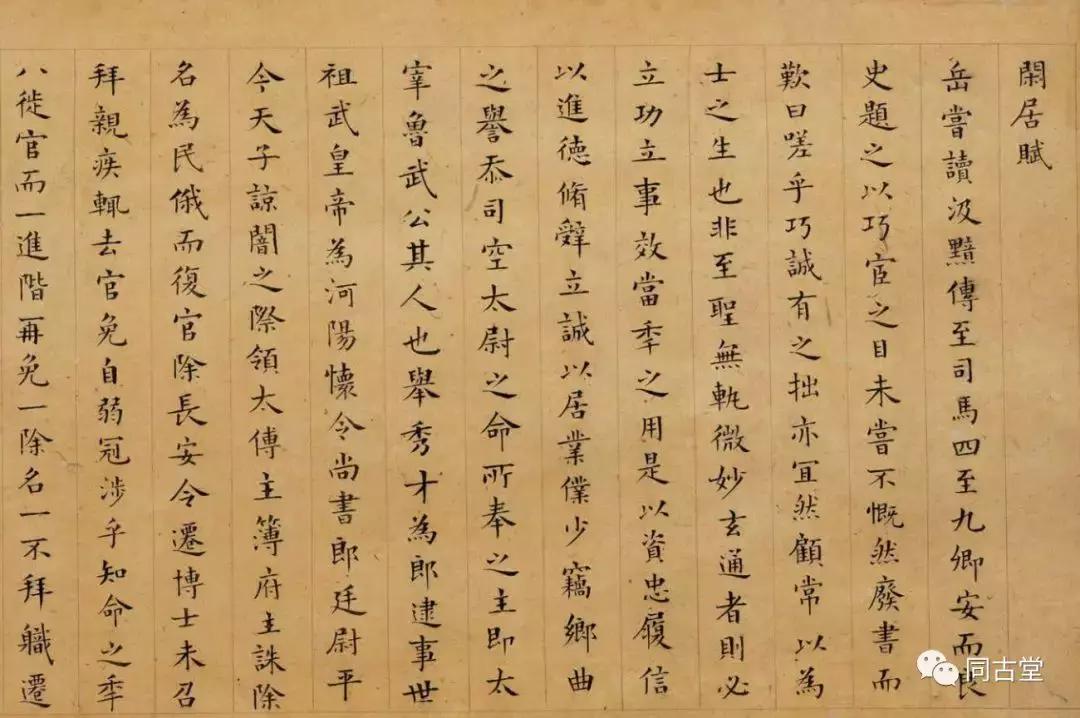 閑居賦
岳嘗讀汲黯傳至司馬四至九卿安而良
史題之以巧宦之目未嘗不慨然廢書而
歎曰嗟乎巧誠有之拙亦宜然顧常以為
士之生也非至聖無軌微妙玄通者則必
立功立事效當秊之用是以資忠履信
以進德脩辭立誠以居業僕少竊鄉曲
之譽忝司空太尉之命所奉之主即太
宰魯武公其人也舉秀才為郎逮事世
祖武皇帝為河陽懷令尚書郎廷尉平
今天子諒闇之際領太傅主簿府主誅除
名為民俄而復官除長安令遷博士未召
拜親疾輒去官免自弱冠涉乎知命之秊
八徙官而一進階再免一除名一不拜職遷
同古堂